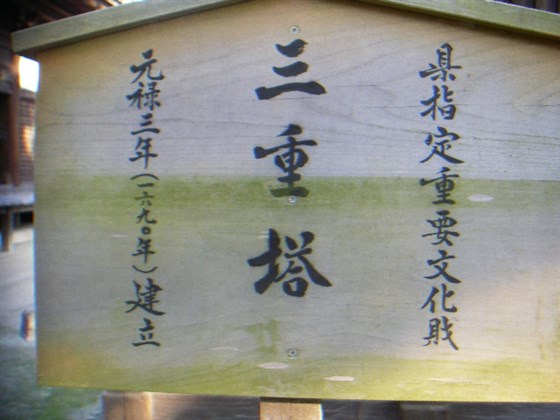 県指定重要文化財
三重塔
元禄三年(一六九〇年)建立